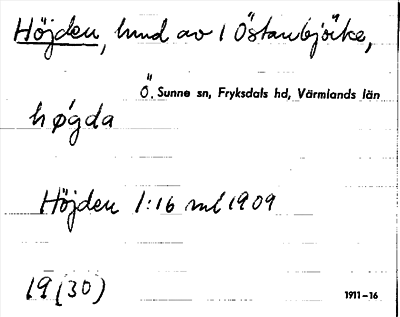 Höjden, hmd av 1 Östanbjörke,
Ö. Sunne sn, Fryksdals hd, Värmlands län
høgda
Höjden 1:16 ml 1909
19 (30)
1911-16